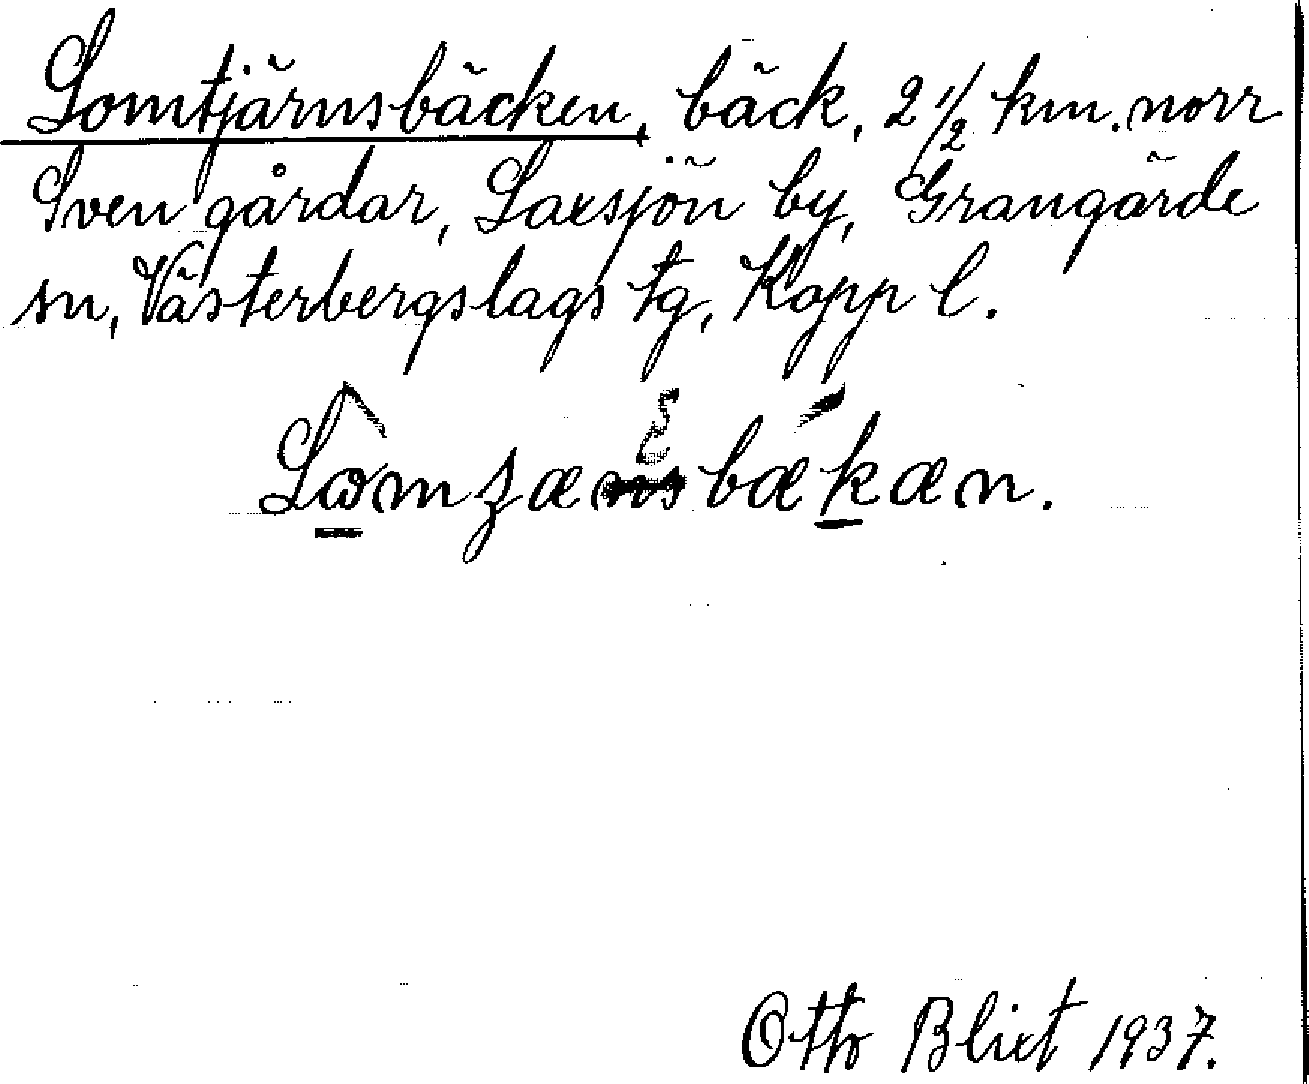 Lomtjärnsbäcken, bäck, 2 1/2 km. norr
Sven gårdar, Laxsjön by, Grangärde
sn, Västerbergslags tg, Kopp l.
Otto Blixt 1937.